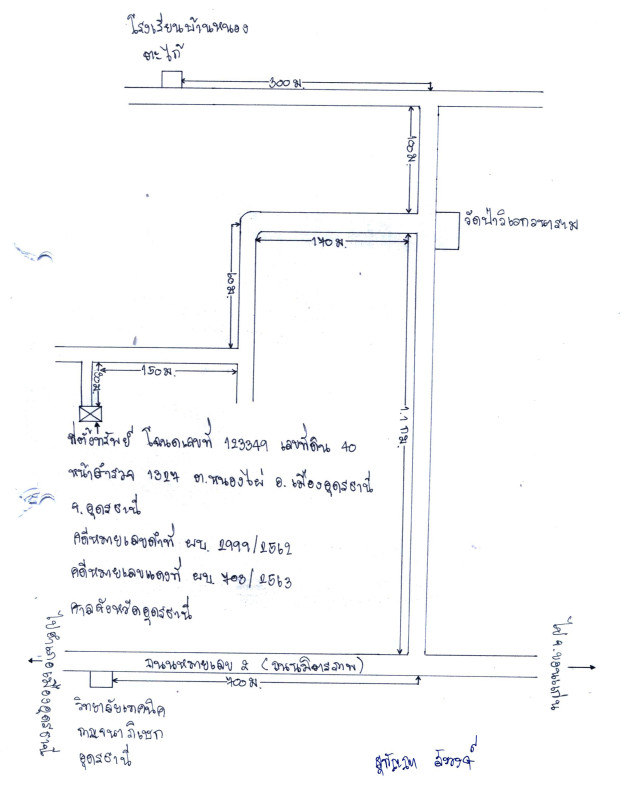 โรงเรียนบ้านหนอง
ตะไก้
300 ม.
100 ม.
วัดป่าวิเวกวนาราม
170 ม.
60 ม.
150 ม.
ม.
1.1 กม.
ที่ตั้งทรัพย์ โฉนดเลขที่ 123349 เลขที่ดิน 40
หน้าสำรวจ 1327 ต.หนองไผ่ อ.เมืองอุดรธานี
จ.อุดรธานี
คดีหมายเลขดำที่ ผบ. 2999/2562
คดีหมายเลขแดงที่ ผบ 708/2563
ศาลจังหวัดอุดรธานี
ไปอำเภอเมืองอุดรธานี
ไป จ.ขอนแก่น
ถนนหมายเลข 2 (ถนนมิตรภาพ)
700 ม.
วิทยาลัยเทคนิค
กาญจนาภิเษก
อุดรธานี